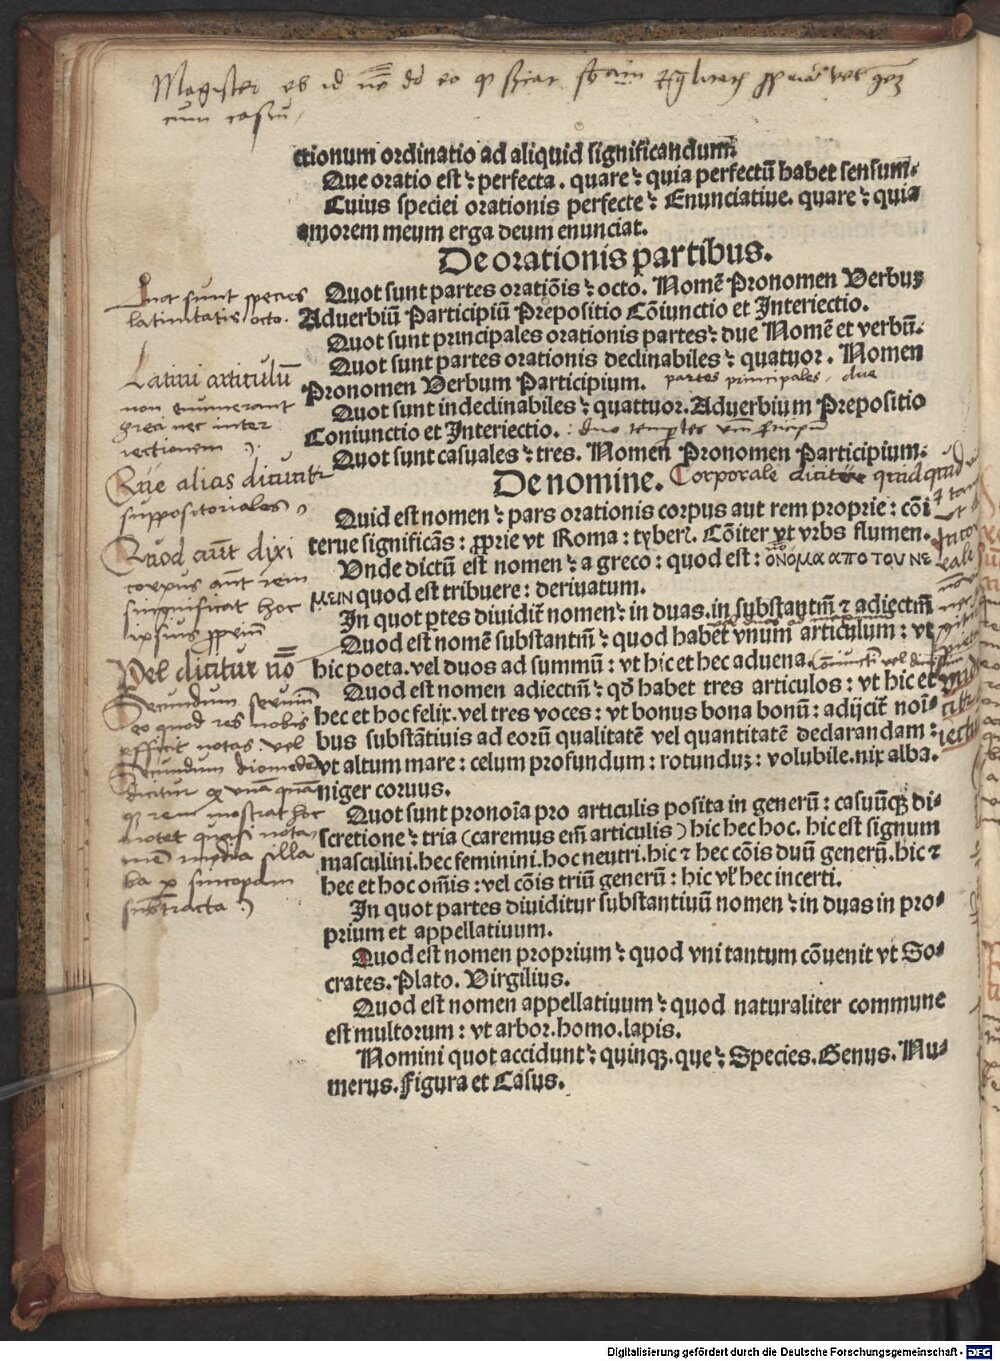 Magister
cum casu
ctionum ordinatio ad aliquid significandum.
Que oratio est: perfecta. quare: quia perfectū habet sensum.
Cuius speciei orationis perfecte: Enunciatiue. quare: quia
amorem meum erga deum enunciat.
De orationis partibus.
Quot sunt partes oratiōis: octo. Nomē Pronomen Verbuꝫ
Aduerbiū Participiū Prepositio Cōiunctio et Interiectio.
Quot sunt principales orationis partes: due Nomē et verbū.
Quot sunt partes orationis declinabiles: quatuor. Nomen
Pronomen Verbum Participium. partes principales, due
Quot sunt indeclinabiles: quattuor. Aduerbium Prepositio
Coniunctio et Interiectio.
Quot sunt casuales: tres. Nomen Pronomen Participium.
De nomine. Corporale dicitur quidquid
Quid est nomen: pars orationis corpus aut rem proprie: cōi
terue significās: ꝓprie vt Roma: tyberꝭ. Cōiter vt vrbs flumen.
Vnde dictū est nomen: a greco: quod est: ὀνομα απο του νε
μειν quod est tribuere: deriuatum.
In quot ptes diuidit̄ nomen: in duas. in substantiū ⁊ adiectiū
Quod est nomē substantiū: quod habet vnum articulum: vt
hic poeta. vel duos ad summū: vt hic et hec aduena.
Quod est nomen adiectiū: qđ habet tres articulos: vt hic et
hec et hoc felix. vel tres voces: vt bonus bona bonū: adijcit̄ noī⸗
bus substātiuis ad eorū qualitatē vel quantitatē declarandam:
vt altum mare: celum profundum: rotunduꝫ: volubile. nix alba.
niger coruus.
Quot sunt pronoīa pro articulis posita in generū: casuūqꝫ di⸗
scretione: tria (caremus em̄ articulis) hic hec hoc. hic est signum
masculini. hec feminini. hoc neutri. hic ⁊ hec cōis duū generū. hic ⁊
hec et hoc om̄is: vel cōis triū generū: hic vl̓ hec incerti.
In quot partes diuiditur substantiuū nomen: in duas in pro⸗
prium et appellatiuum.
Quod est nomen proprium: quod vni tantum cōuenit vt So⸗
crates. Plato. Virgilius.
Quod est nomen appellatiuum: quod naturaliter commune
est multorum: vt arbor. homo. lapis.
Nomini quot accidunt: quinqꝫ. que: Species. Genus. Nu⸗
merus. Figura et Casus.
Quot sunt species
latinitatis octo.
Latini articulū
non enumerant
greci nec inter
iectionem
Que alias dicuntr
suppositoriales
Quod aut dixi
corpus aut rem
significat hoc
ipsius ꝓpriū
Vel dicitur nō
Secundum
eo quod res nobis
efficit notas. vel
Secundum diomedē
dicitur
rem mostrat hoc
notet quasi nota
media silla
ba p sincopam
subtracta
Digitalisierung gefördert durch die Deutsche Forschungsgemeinschaft - DFG